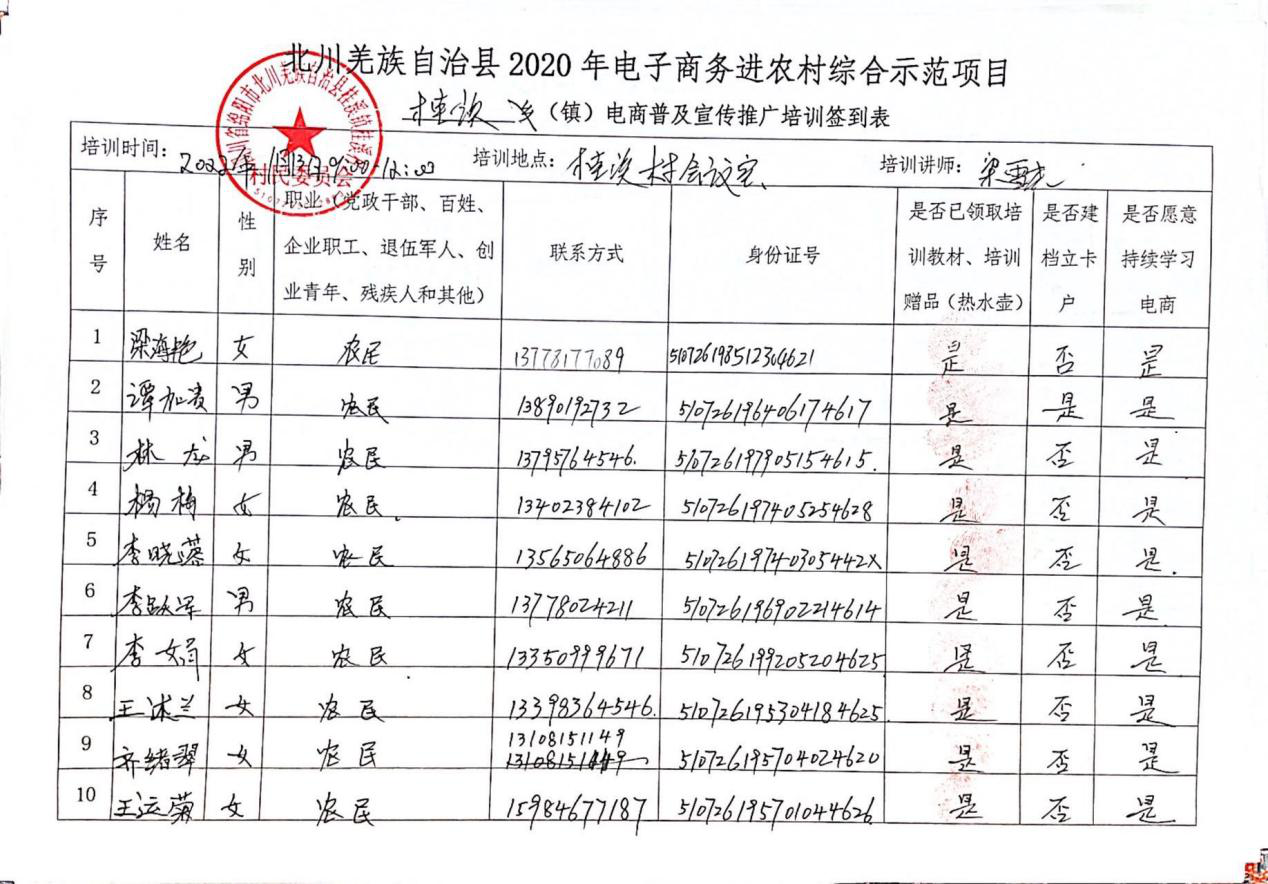 北川羌族自治县2020年电子商务进农村综合示范项目
桂溪乡（镇）电商普及宣传推广培训签到表
培训时间： 培训地点：桂溪村会议室 培训讲师：
村民委员会
序号 姓名 性别 职业（党政干部、百姓、企业职工、退伍军人、创业青年、残疾人和其他） 联系方式 身份证号 是否已领取培训教材、培训赠品（热水壶） 是否建档立卡户 是否愿意持续学习电商
1 梁海艳 女 农民 13778177089 510726198512304621 是 否 是
2 谭加贵 男 农民 13890192732 510726196406174617 是 是 是
3 林龙 男 农民 13795764546. 510726197905154615. 是 否 是
4 杨梅 女 农民. 13402384102 510726197405254628 是 否 是
5 李晓蓉 女 农民 13565064886 51072619740305442X 是 否 是.
6 李跃军 男 农民 13778024211 510726196902214614 是 否 是
7 李女娟 女 农民 13350999671 510726199205204625 是 否 是
8 王 兰 女 农民 13398364546. 510726195304184625. 是 否 是
9 齐绪翠 女 农民 13108151149 510726195704024620 是 否 是
10 王运菊 女 农民 15984677187 510726195701044626 是 否 是